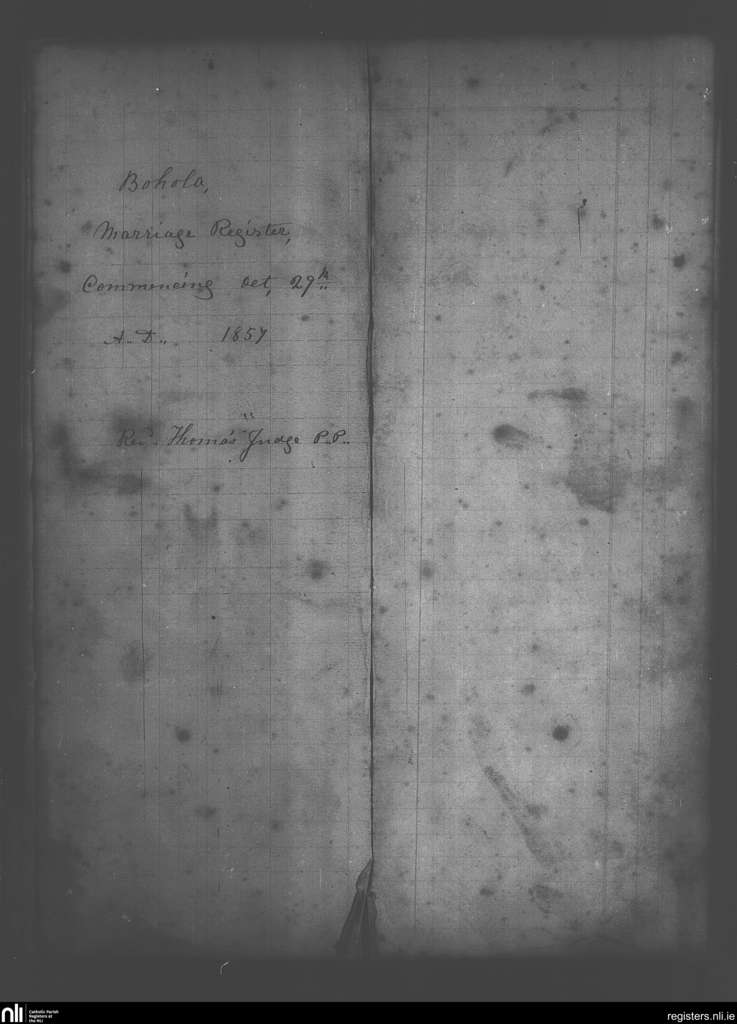 Bohola,
Marriage Register,
Commencing Oct, 29th
A.D., 1857
Revd. Thomas Judge P.P..
nli
Catholic Parish
Registers at
the NLI
registers.nli.ie